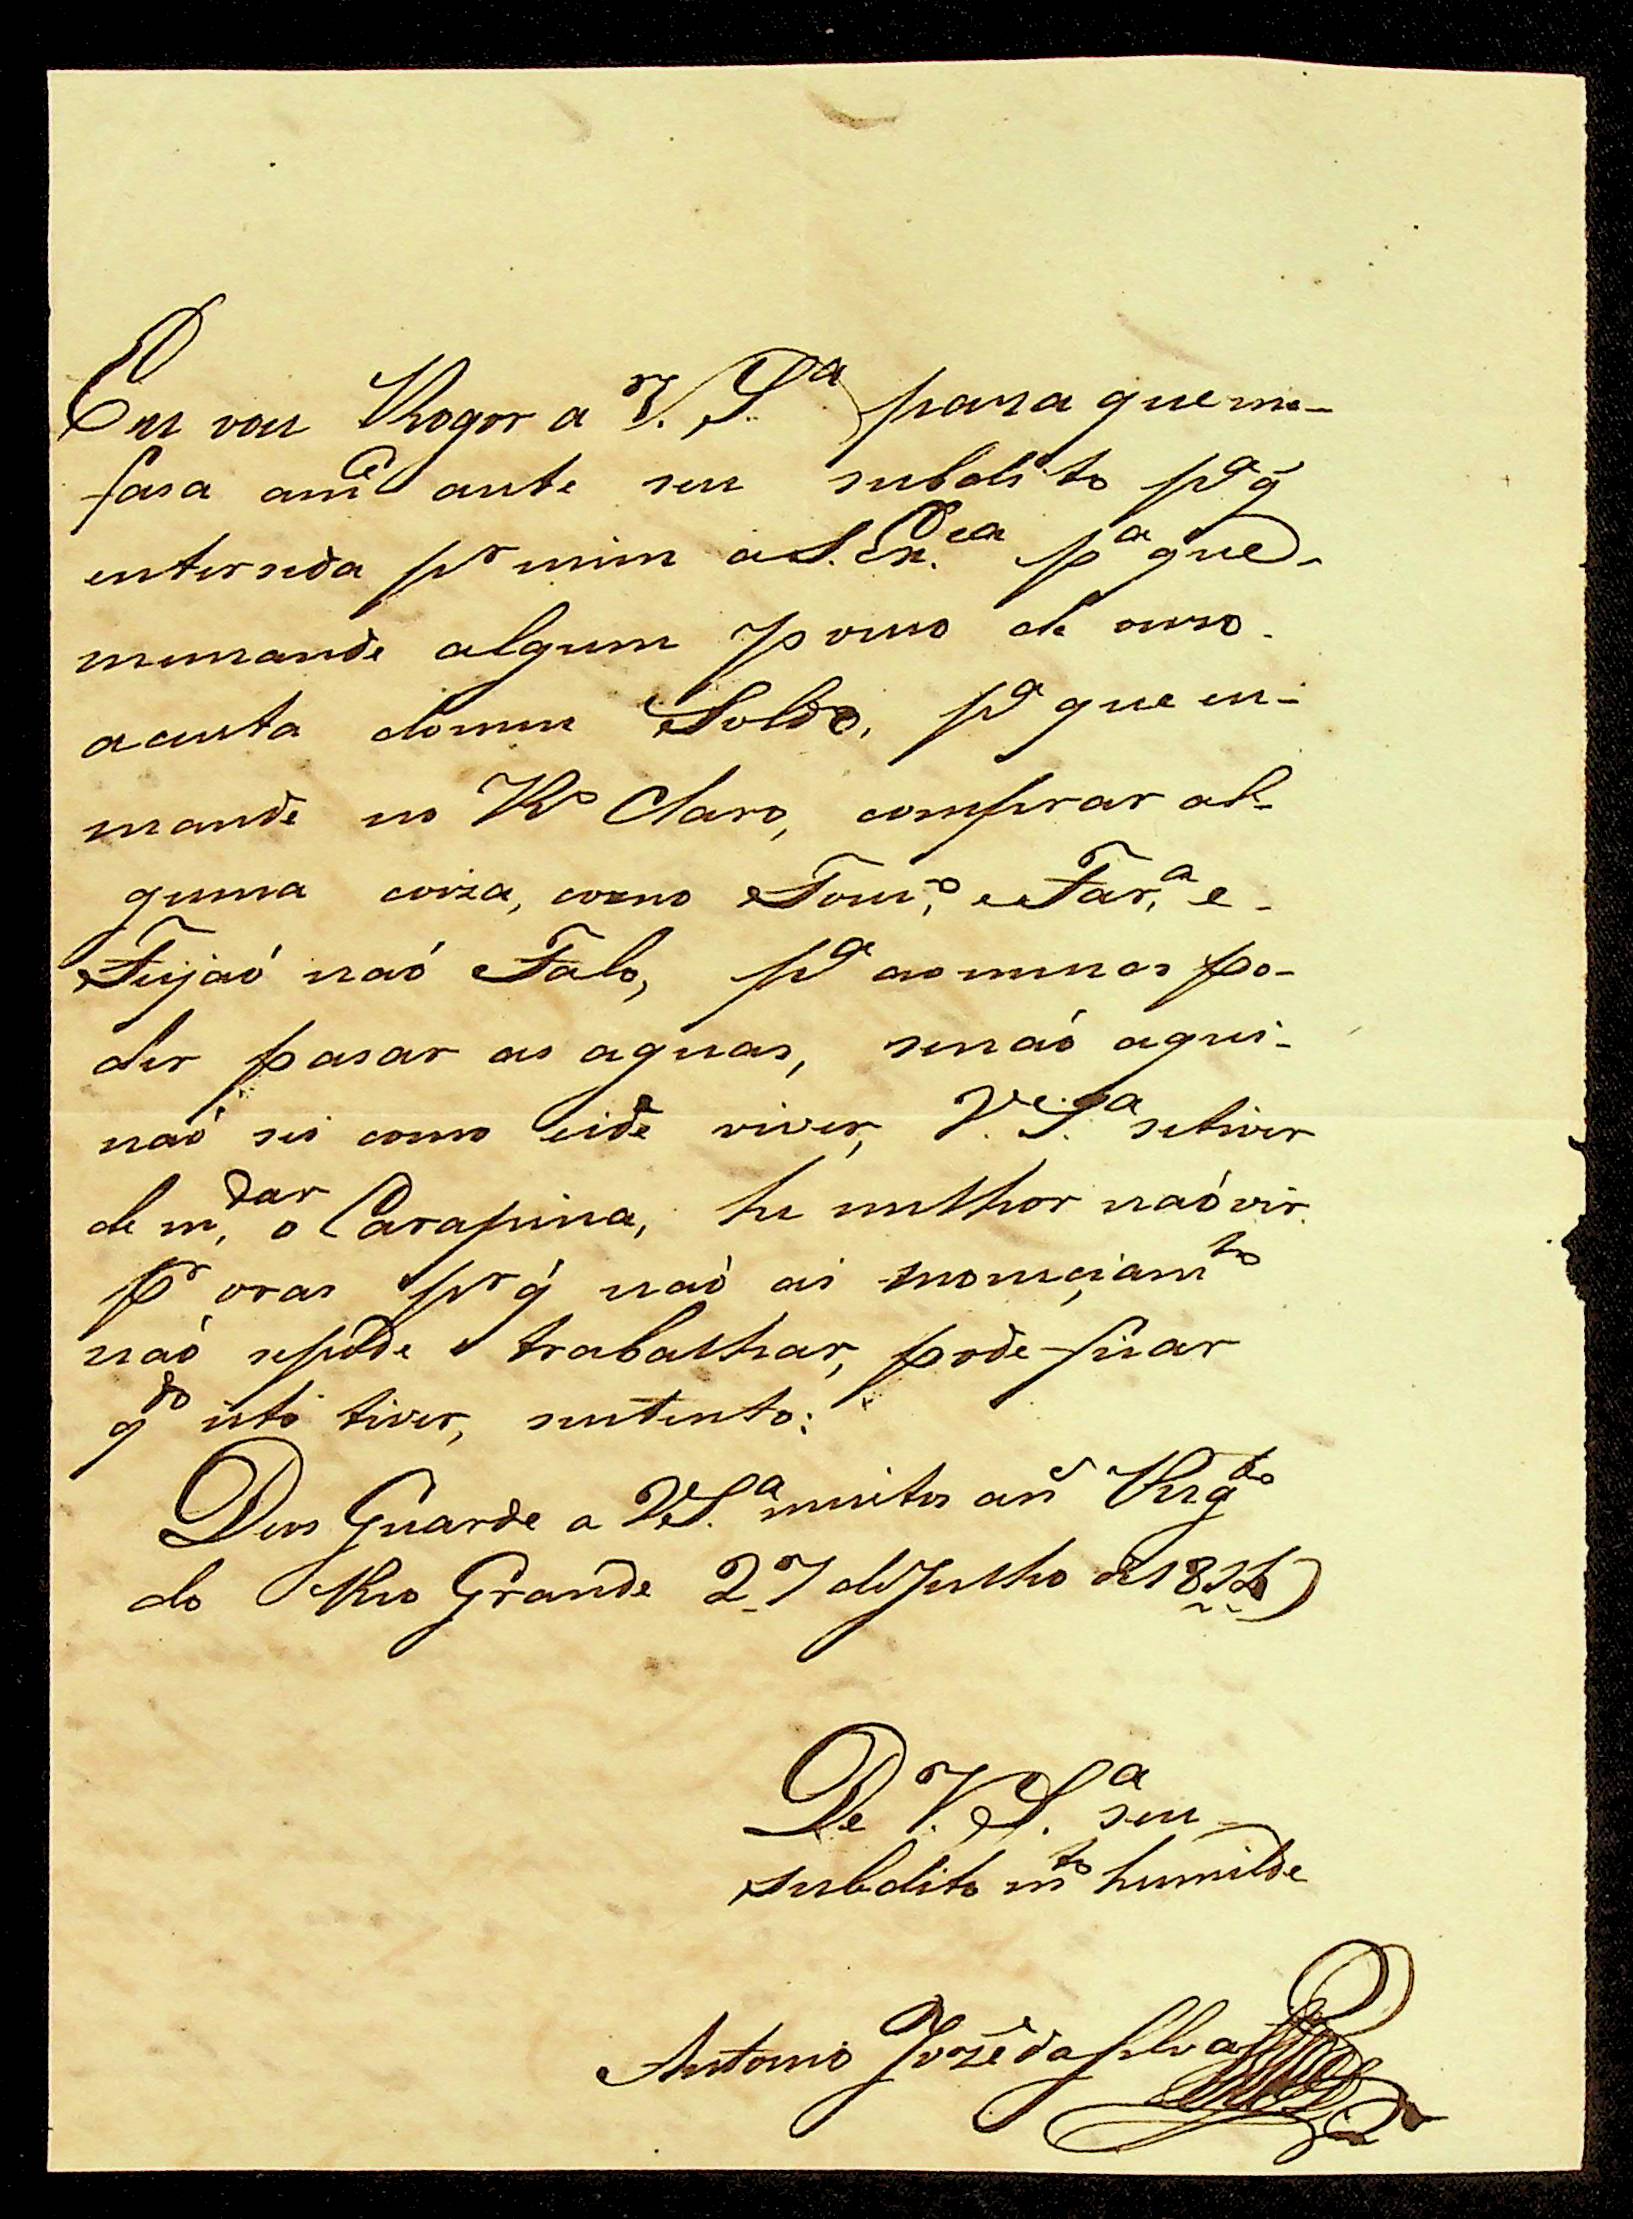 Eu vou Rogar a V. S.ª para que me-
fasa a mi ante seu subdito p.ª q̃
interseda p.r mim a S. Ex.cia p.ª que-
me mande algum pouco de ouro.
a conta do meu Soldo, p.ª que eu-
mande no R.º Claro, comprar al-
guma coiza, como Touc.º, e Far.ª e-
Feijaó naó Falo, p.ª ao menos po-
der pasar as aguas, senaó aqui-
naó sei como eide viver, V. S.ª se tiver
de m.dar o Carapina, he milhor naó vir
p.r oras p.r q́ naó ai monisiam.to
naó se pode trabalhar, pode ficar
q.do isto tiver, sustento:
Deos Guarde a V. S.ª muitos an.s Reg.to
do Rio Grande 27 de Julho de
De V. S.ª seu-
subdito m.to humilde
Antonio Jozé da Silva